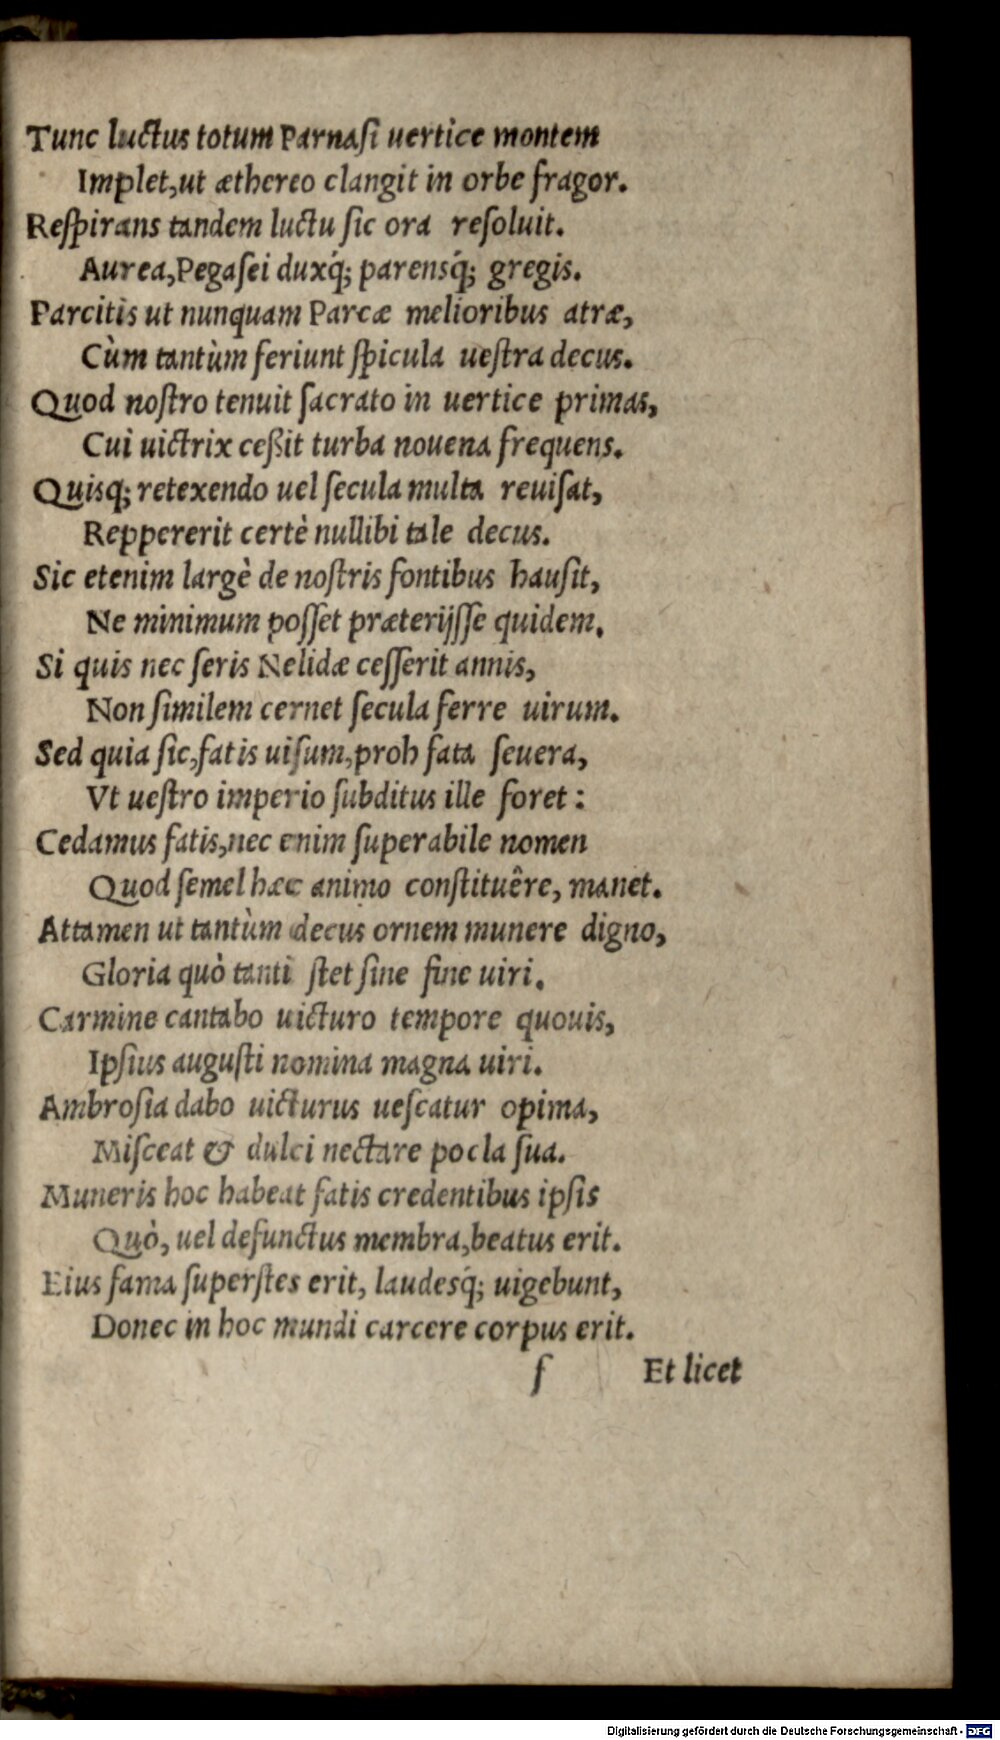 Tunc luctus totum Parnaſi uertice montem
Implet, ut æthereo clangit in orbe fragor.
Reſpirans tandem luctu ſic ora reſoluit.
Aurea, Pegaſei duxq́; parensq́; gregis.
Parcitis ut nunquam Parcæ melioribus atræ,
Cùm tantùm feriunt ſpicula ueſtra decus.
Quod noſtro tenuit ſacrato in uertice primas,
Cui uictrix ceßit turba nouena frequens.
Quisq; retexendo uel ſecula multa reuiſat,
Reppererit certè nullibi tale decus.
Sic etenim largè de noſtris fontibus hauſit,
Ne minimum poſſet præterijſſe quidem.
Si quis nec ſeris Nelidæ ceſſerit annis,
Non ſimilem cernet ſecula ferre uirum.
Sed quia ſic, fatis uiſum, proh fata ſeuera,
Vt ueſtro imperio ſubditus ille foret:
Cedamus fatis, nec enim ſuperabile nomen
Quod ſemel hæc animo conſtituêre, manet.
Attamen ut tantùm decus ornem munere digno,
Gloria quò tanti ſtet ſine fine uiri.
Carmine cantabo uicturo tempore quouis,
Ipſius auguſti nomina magna uiri.
Ambroſia dabo uicturus ueſcatur opima,
Miſceat & dulci nectare pocla ſua.
Muneris hoc habeat fatis credentibus ipſis
Quò, uel defunctus membra, beatus erit.
Eius fama ſuperſtes erit, laudesq́; uigebunt,
Donec in hoc mundi carcere corpus erit.
f Et licet
Digitalisierung gefördert durch die Deutsche Forschungsgemeinschaft - DFG